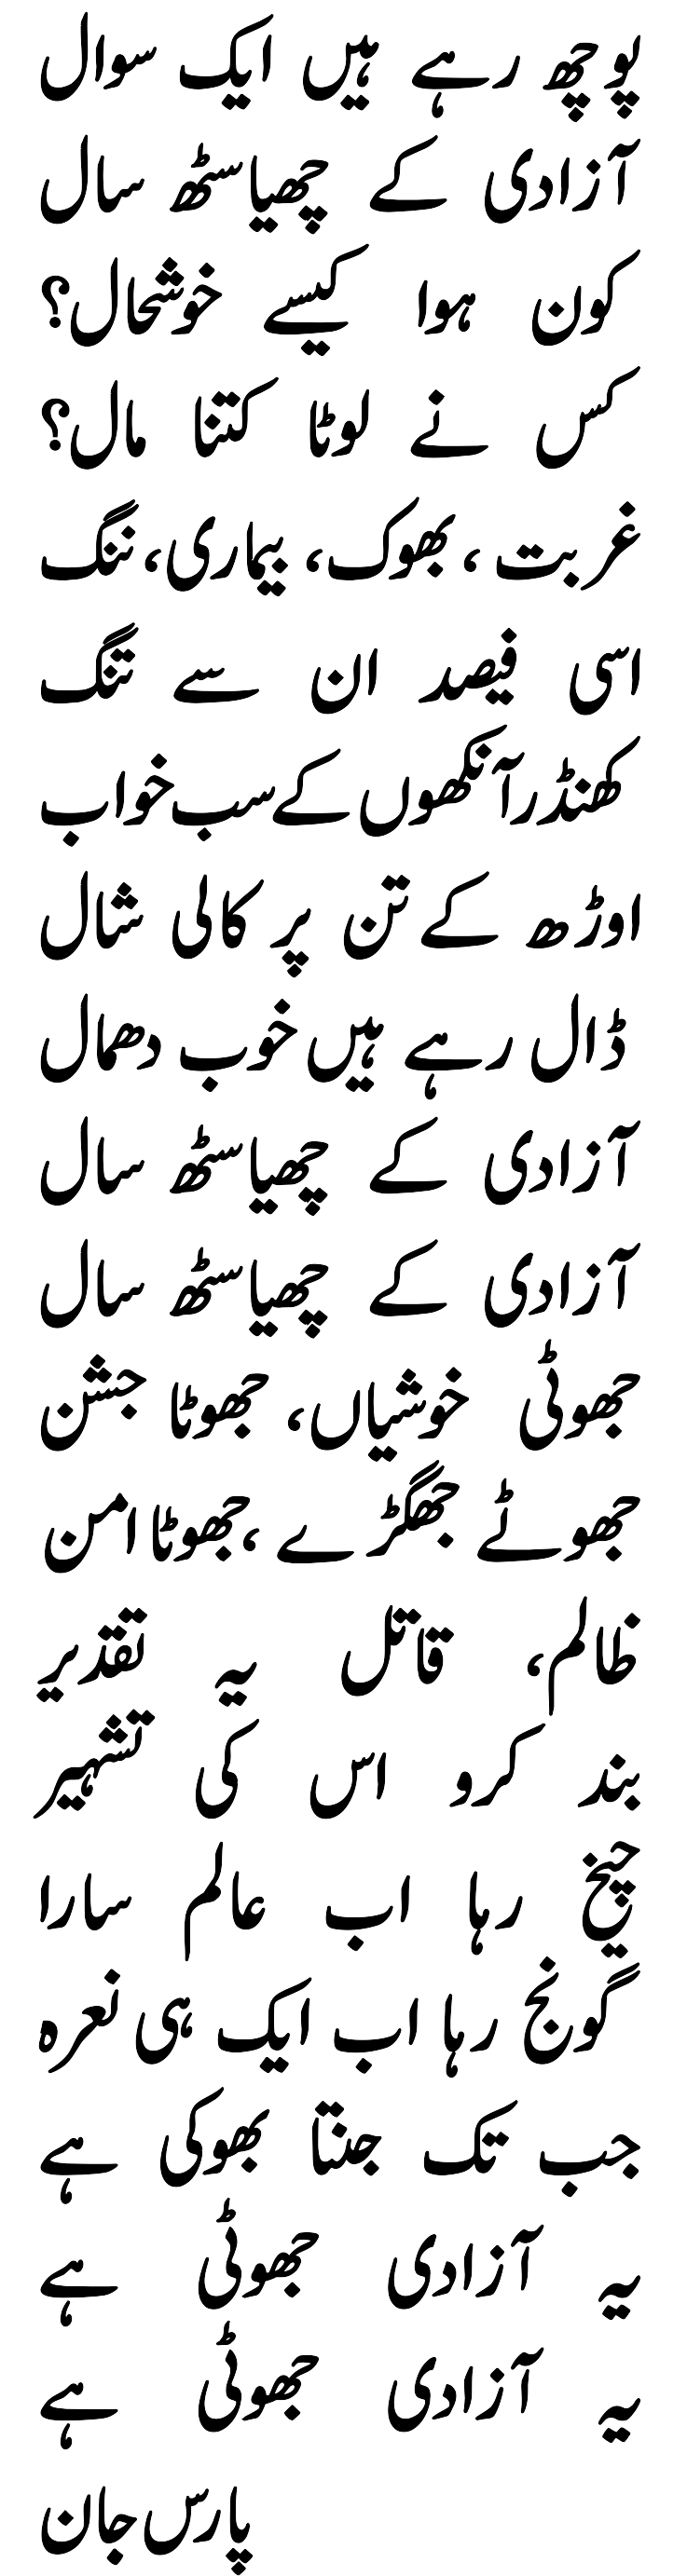 پوچھ رہے ہیں ایک سوال
آزادی کے چھیاسٹھ سال
کون ہوا کیسے خوشحال؟
کس نے لوٹا کتنا مال؟
غربت، بھوک، بیماری، ننگ
اسی فیصد ان سے تنگ
کھنڈر آنکھوں کے سب خواب
اوڑھ کے تن پر کالی شال
ڈال رہے ہیں خوب دھمال
آزادی کے چھیاسٹھ سال
آزادی کے چھیاسٹھ سال
جھوٹی خوشیاں، جھوٹا جشن
جھوٹے جھگڑے، جھوٹا امن
ظالم، قاتل یہ تقدیر
بند کرو اس کی تشہیر
چیخ رہا اب عالم سارا
گونج رہا اب ایک ہی نعرہ
جب تک جنتا بھوکی ہے
یہ آزادی جھوٹی ہے
یہ آزادی جھوٹی ہے
پارس جان